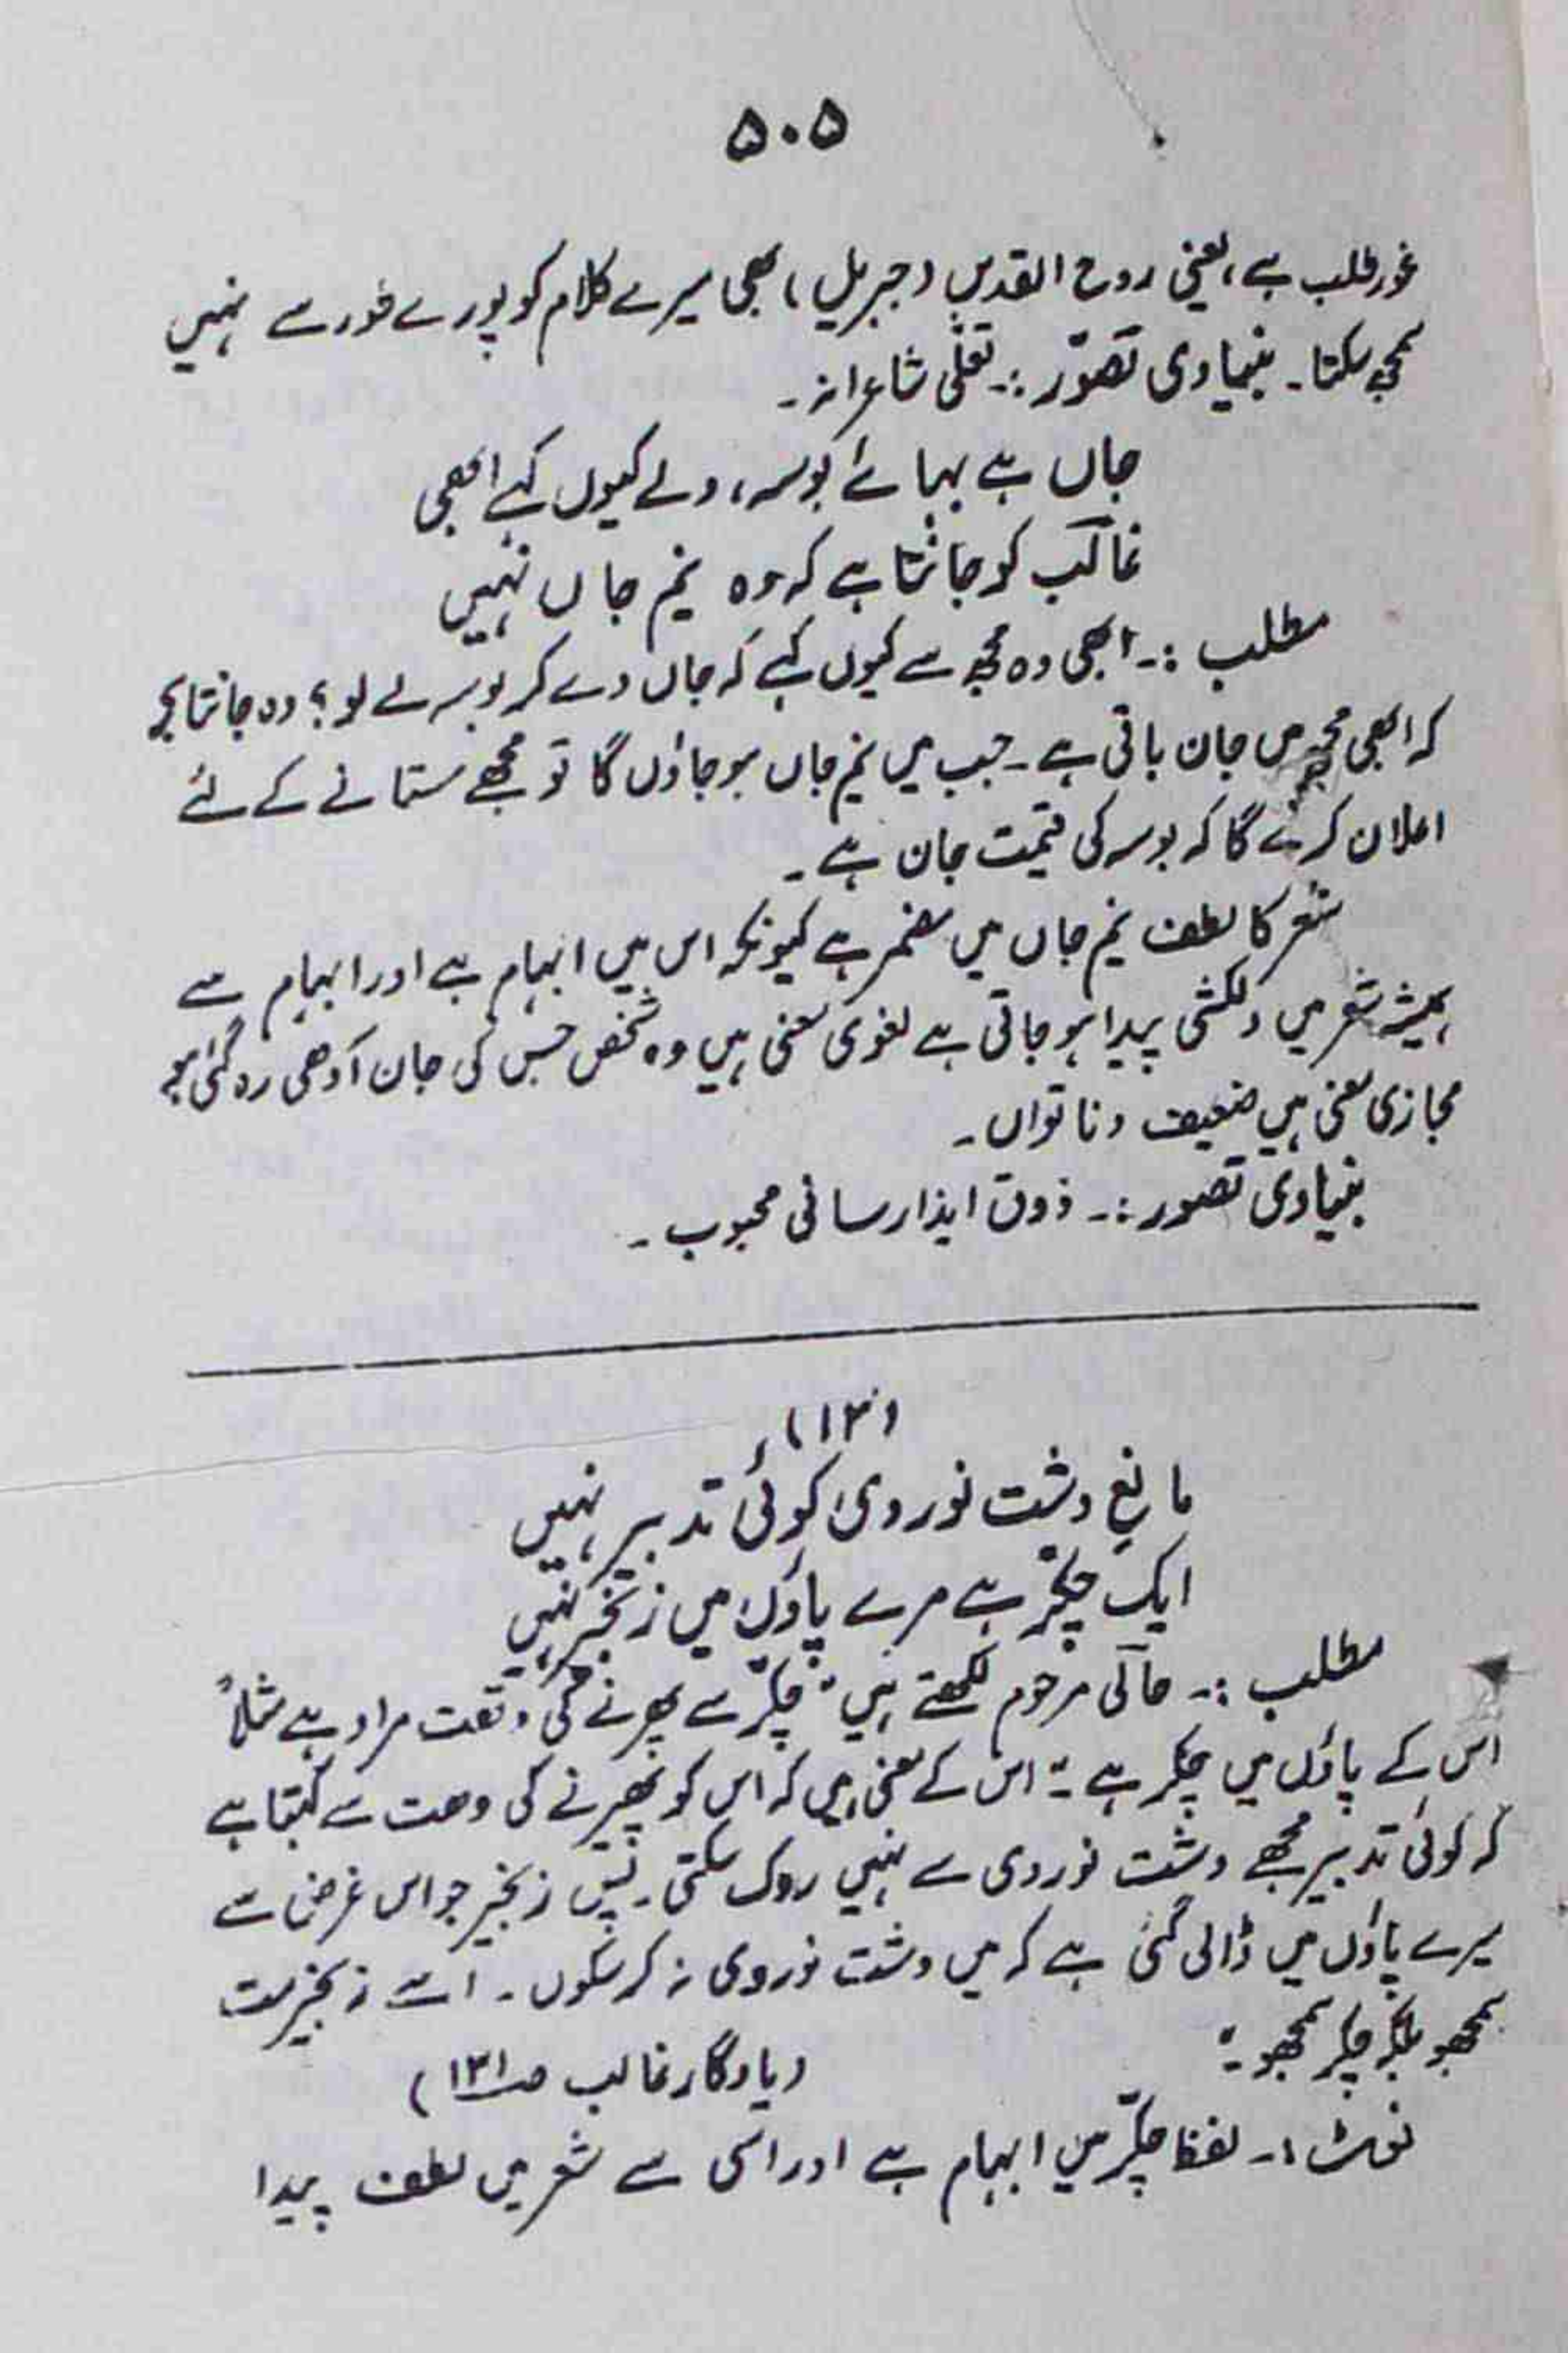 ۵۰۵
غور طلب ہے، یعنی روح القدس (جبریل) بھی میرے کلام کو پورے طور سے نہیں
سمجھ سکتا۔ بنیادی تصوّر :۔ تعلّی شاعرانہ۔
جاں ہے بہائے بوسہ، ولے کیوں کہے ابھی
غالب کو جانتا ہے کہ وہ نیم جاں نہیں
مطلب :۔ ابھی وہ مجھ سے کیوں کہے کہ جاں دے کر بوسہ لے لو؟ وہ جانتا ہے
کہ ابھی مجھ میں جان باقی ہے۔ جب میں نیم جاں ہو جاؤں گا تو مجھے ستانے کے لئے
اعلان کرے گا کہ بوسہ کی قیمت جان ہے۔
شعر کا لطف نیم جاں میں مضمر ہے کیونکہ اس میں ابہام ہے اور ابہام سے
ہمیشہ شعر میں دلکشی پیدا ہو جاتی ہے لغوی معنی ہیں وہ شخص جس کی جان آدھی رہ گئی ہو
مجازی معنی ہیں ضعیف و ناتواں۔
بنیادی تصور :۔ ذوق ایذا رسانی محبوب۔
(۱۳)
مانعِ دشت نوردی کوئی تدبیر نہیں
ایک چکّر ہے مرے پاؤں میں زنجیر نہیں
مطلب :۔ حالی مرحوم لکھتے ہیں "چکّر سے پھرنے کی وقعت مراد ہے مثلاً
اس کے پاؤں میں چکر ہے" اس کے معنی ہیں کہ اس کو پھرنے کی دھت ہے کہتا ہے
کہ کوئی تدبیر مجھے دشت نوردی سے نہیں روک سکتی۔ پس زنجیر جو اس غرض سے
میرے پاؤں میں ڈالی گئی ہے کہ میں دشت نوردی نہ کر سکوں۔ اسے زنجیر مت
سمجھو بلکہ چکر سمجھو۔"
(یادگار غالب صـ۱۳۱)
نوٹ :۔ لفظ چکّر میں ابہام ہے اور اسی سے شعر میں لطف پیدا